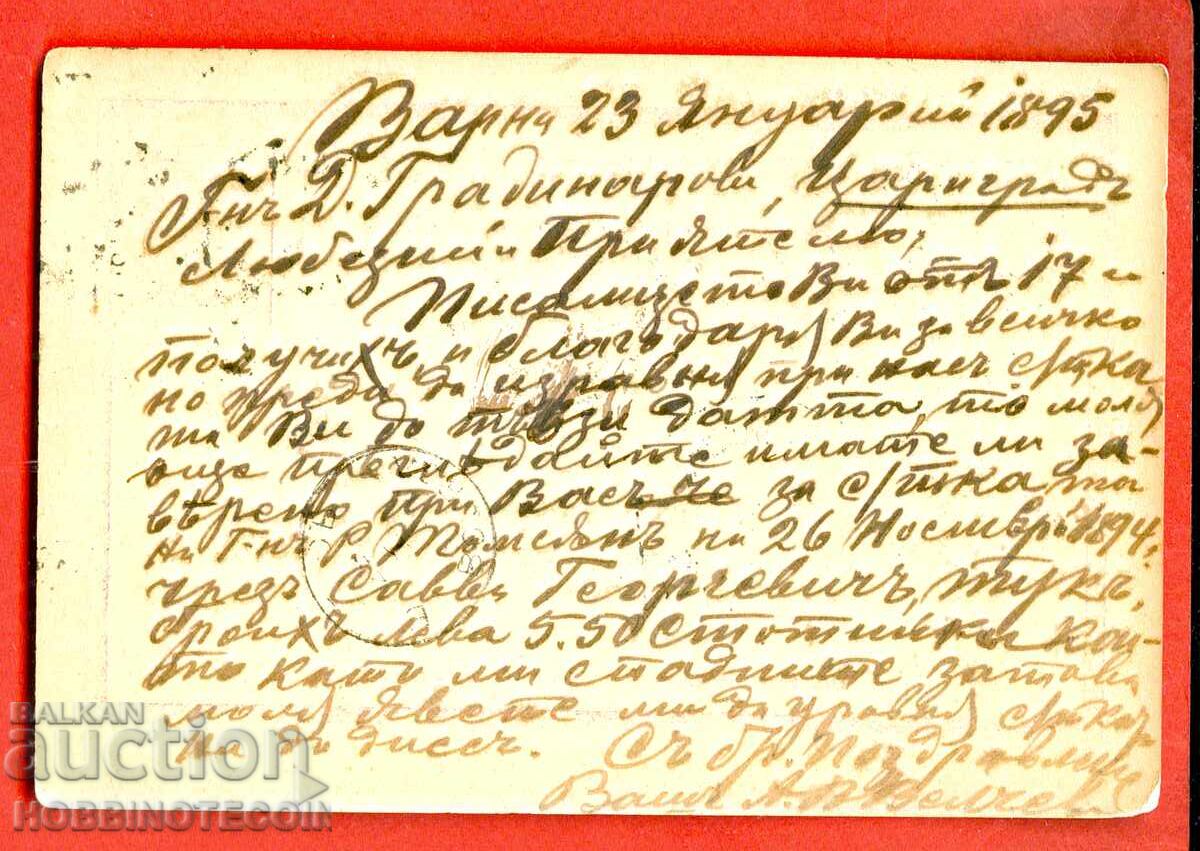 Варна 23 Януарий 1895
Г-нъ Д. Градинаровъ, Цариградъ
Любезний Приятелю,
Писмилцето Ви отъ 17-и
получихъ и благодаря Ви за всичко
но преди да изравня при насъ с/тка
та Ви до тъзи датта, то моля
още прегледайте имате ли за-
верено при Васъ че за с/тката
на Г-нъ Р Томсянъ на 26 Ноемврий 1894.
чрезъ Савва Георгевичъ, тукъ,
броихъ лева 5.50 стотинки кои-
то като ми стадните затова
моля явете ми да уровня с/тка-
та до днесъ. Съ бр. Поздравление
Вашъ А. В Велчевъ
BALKAN
auction
HOBBINOTECOIN